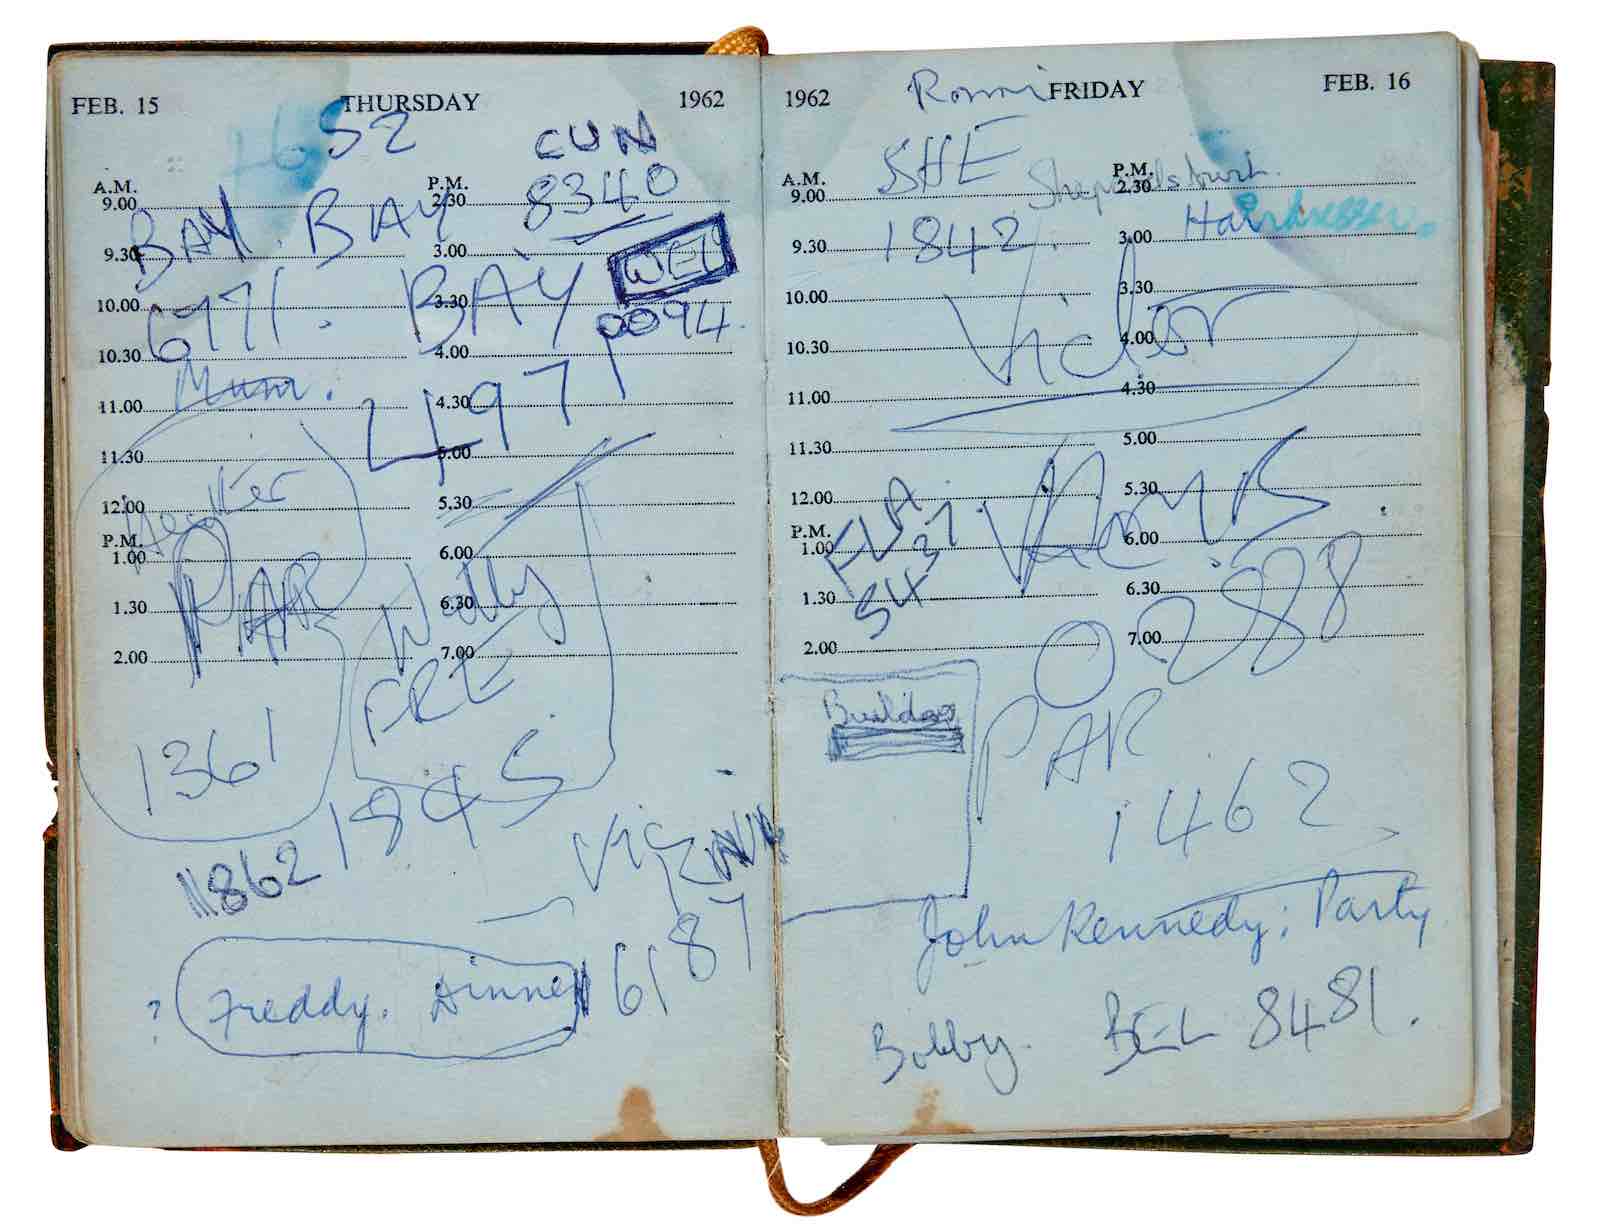 FEB. 15 THURSDAY 1962
4652
CUN
8340
A.M.
9.00
9.30
10.00
10.30
11.00
11.30
12.00
P.M.
1.00
1.30
2.00
P.M.
2.30
3.00
3.30
4.00
4.30
5.00
5.30
6.00
6.30
7.00
BAY. BAY
6771. BAY
WEL
0094.
Mum.
4971
PAR
1361
Wally
FRE
1845
11862
6187
? Freddy. dinner
1962 FRIDAY FEB. 16
Ronni
SHE
1842.
Shepherds bush.
Hairdresser.
A.M.
9.00
9.30
10.00
10.30
11.00
11.30
12.00
P.M.
1.00
1.30
2.00
P.M.
2.30
3.00
3.30
4.00
4.30
5.00
5.30
6.00
6.30
7.00
Victor
FLA
5437.
0288
Builder
PAR
1462
John Kennedy; Party
Bobby. BEL 8481.